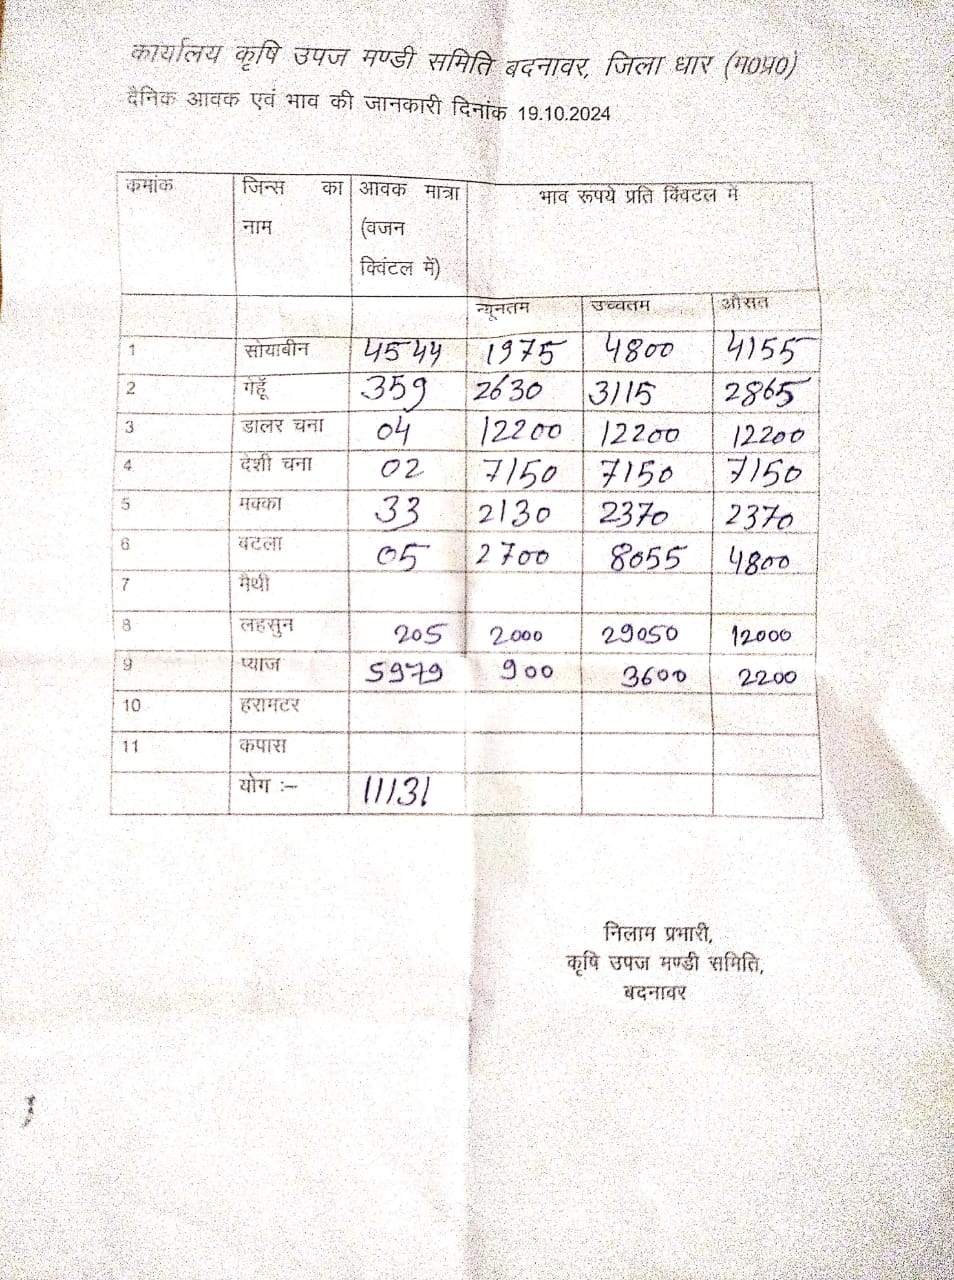 कार्यालय कृषि उपज मण्डी समिति बदनावर, जिला धार (म0प्र0)
दैनिक आवक एवं भाव की जानकारी दिनांक 19.10.2024
कमांक जिन्स का नाम आवक मात्रा (वजन क्विंटल में) भाव रूपये प्रति क्विंटल में
न्यूनतम उच्चतम औसत
1 सोयाबीन 4544 1975 4800 4155
2 गेहूँ 359 2630 3115 2865
3 डालर चना 04 12200 12200 12200
4 देशी चना 02 7150 7150 7150
5 मक्का 33 2130 2370 2370
6 बटला 05 2700 8055 4800
7 मैथी
8 लहसुन 205 2000 29050 12000
9 प्याज 5979 900 3600 2200
10 हरामटर
11 कपास
योग :– 11131
निलाम प्रभारी,
कृषि उपज मण्डी समिति,
बदनावर